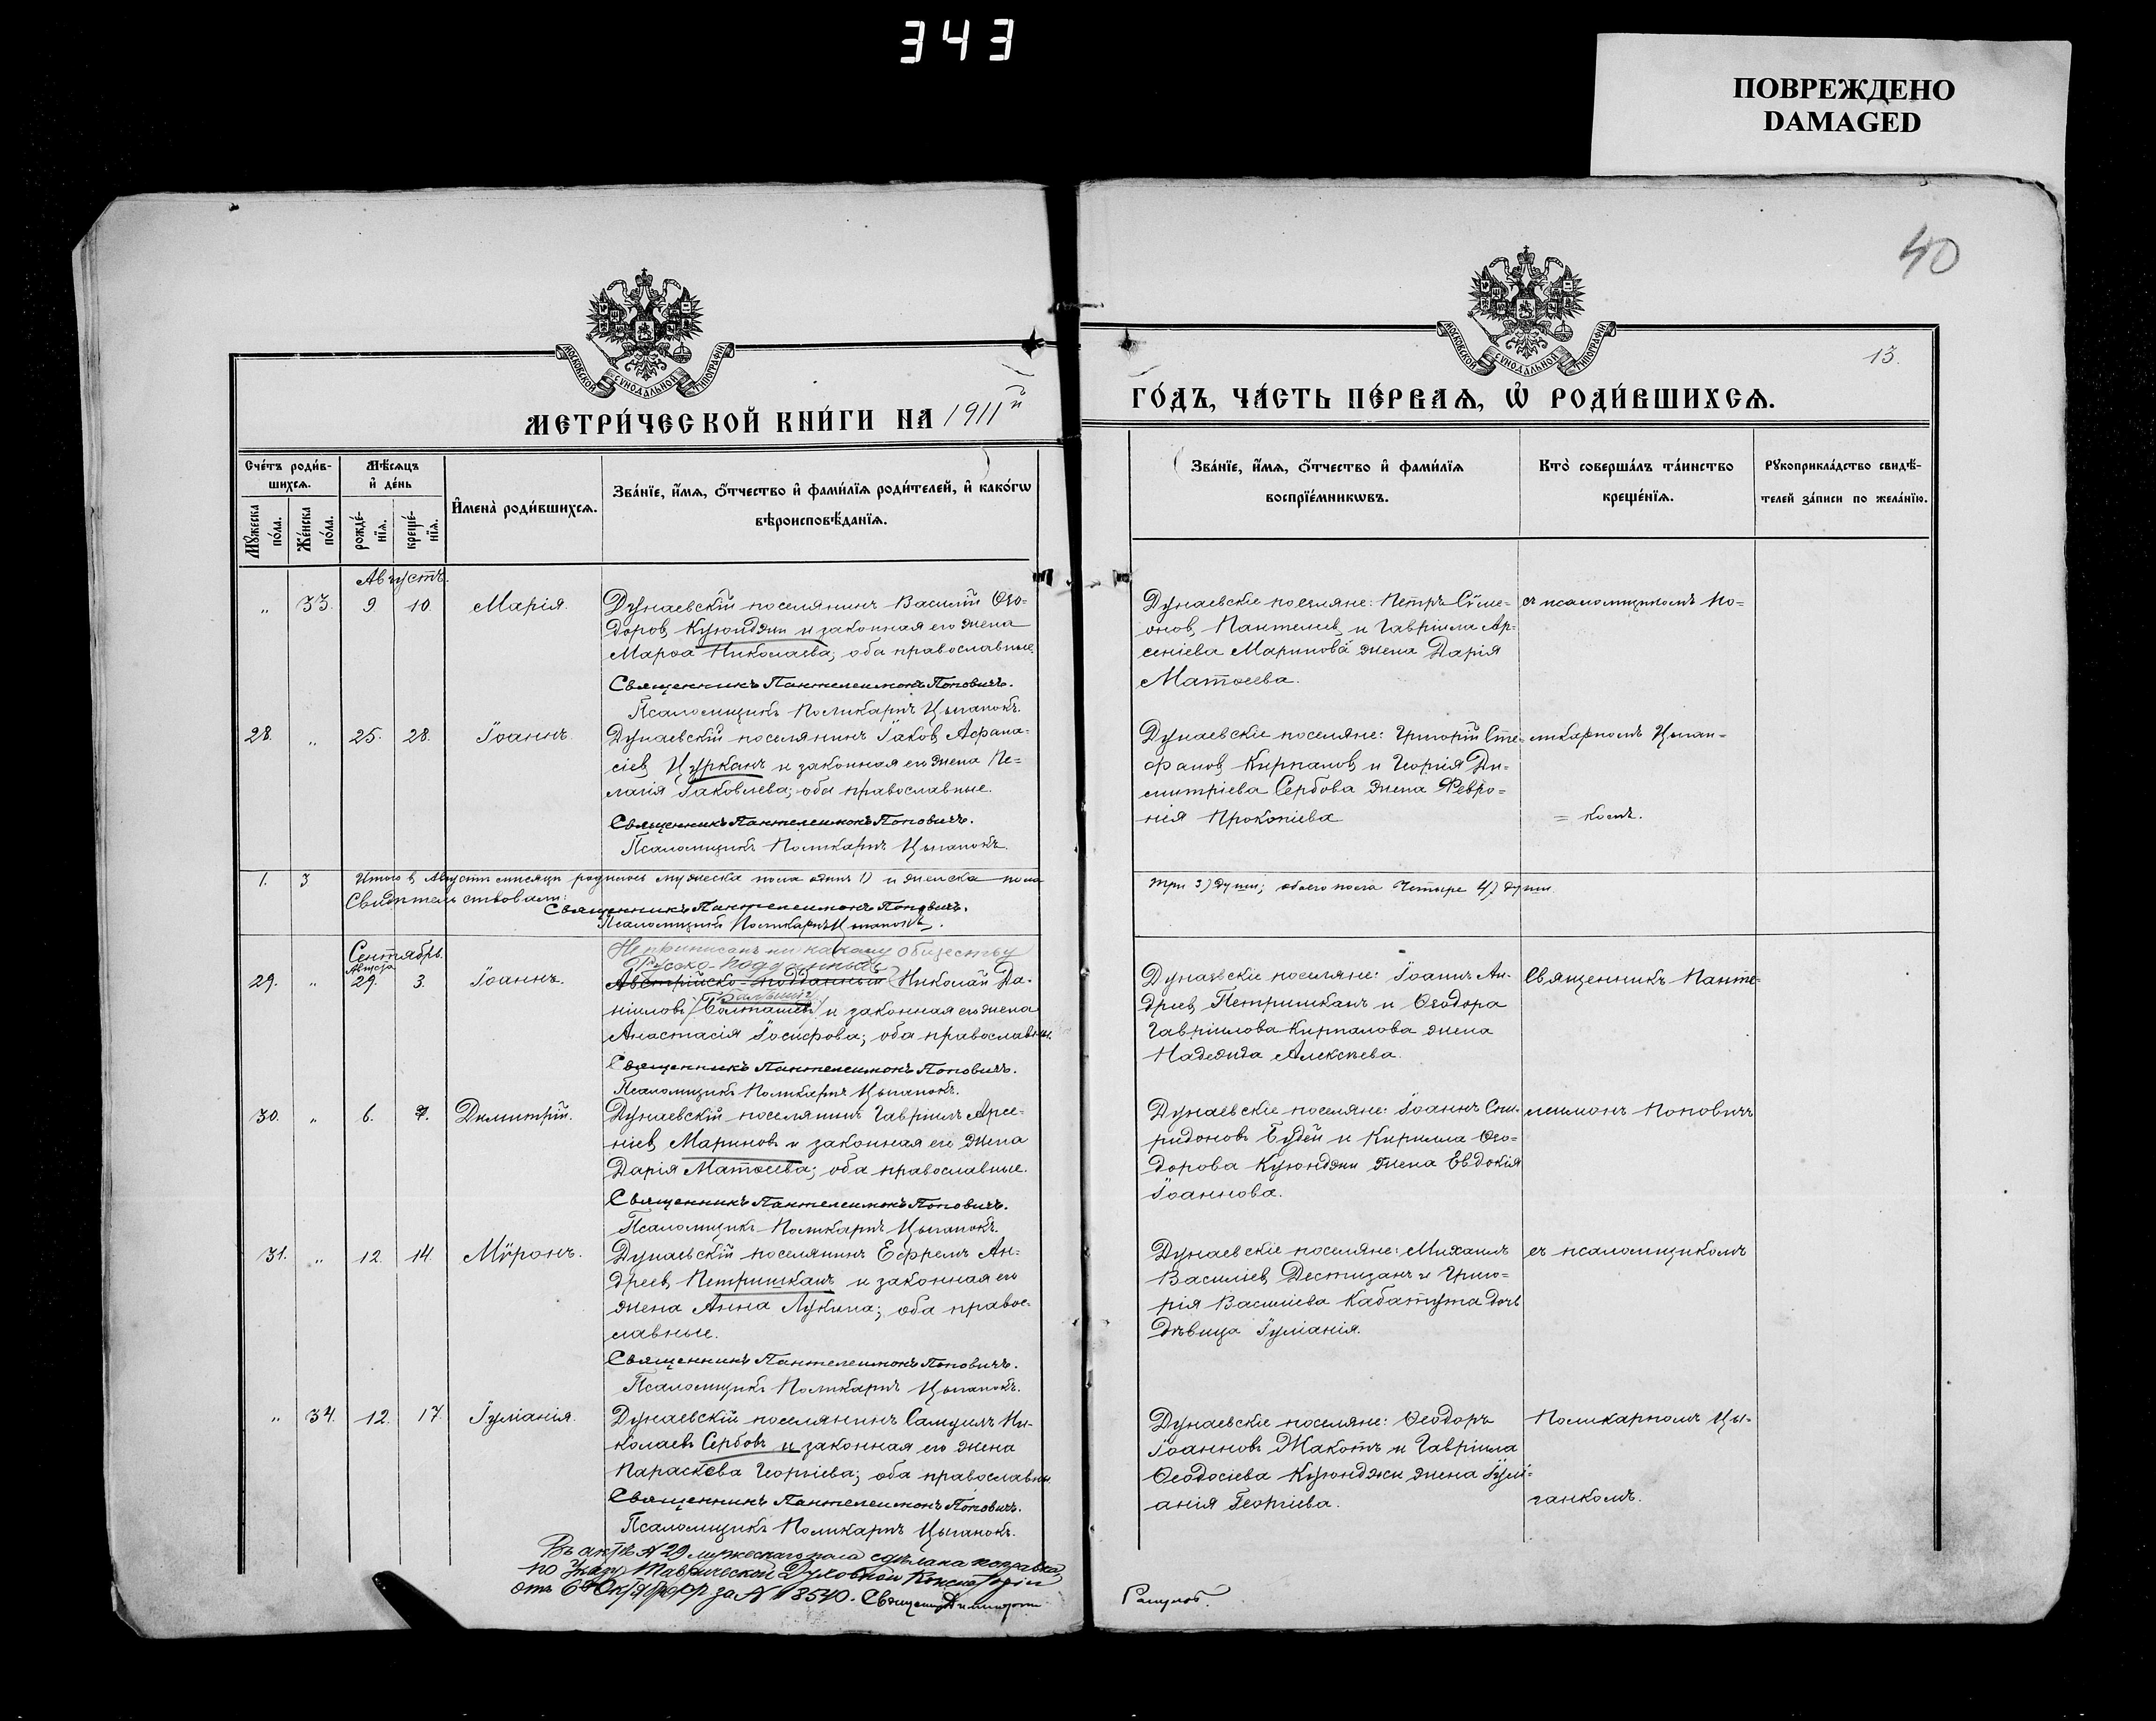 343
ПОВРЕЖДЕНО
DAMAGED
40
13.
МОСКОВСКОЙ СѴНОДАЛЬНОЙ ТИПОГРАФІИ
МОСКОВСКОЙ СѴНОДАЛЬНОЙ ТИПОГРАФІИ
МЕТРИ́ЧЕСКОЙ КНИ́ГИ НА 1911й
ГО́ДЪ, ЧА́СТЬ ПЕ́РВАѦ, Ѡ҆ РОДИ́ВШИХСѦ.
Сче́тъ роди́в-
шихсѧ.
Мꙋжеска по́ла.
Же́нска по́ла.
Мѣ́сѧцъ
и҆ де́нь
рожде́-
нїѧ.
креще́-
нїѧ.
И҆мена̀ роди́вшихсѧ.
Зва́нїе, и҆́мѧ, ѻ҆́тчество и҆ фами́лїѧ роди́телей, и҆ како́гѡ
вѣроисповѣ́данїѧ.
Зва́нїе, и҆́мѧ, ѻ҆́тчество и҆ фами́лїѧ
воспрїе́мникѡвъ.
Кто̀ соверша́лъ та́инство
креще́нїѧ.
Рꙋкоприкла́дство свидѣ́-
телей за́писи по жела́нїю.
Августъ.
" 33. 9. 10. Марія.
Дунаевскій поселянинъ Василій Ѳео-
доровъ Куюнджи и законная его жена
Марѳа Николаева; оба православные.
Священникъ Пантелеимонъ Поповичъ.
Псаломщикъ Поликарпъ Цыганокъ.
Дунаевскіе поселяне: Петръ Сѵме-
оновъ Пантелеевъ и Гавріила Ар-
сеніева Маринова жена Дарія
Матѳеева.
съ псаломщикомъ По-
28. " 25. 28. Іоаннъ.
Дунаевскій поселянинъ Іаковъ Аѳана-
сіевъ Цурканъ и законная его жена Пе-
лагія Іаковлева; оба православные.
Священникъ Пантелеимонъ Поповичъ.
Псаломщикъ Поликарпъ Цыганокъ.
Дунаевскіе поселяне: Григорій Сте-
фановъ Кирпаловъ и Георгія Ди-
митріева Сербова жена Февро-
нія Прокопіева
ликарпомъ Цыган-
= комъ.
1. 3 Итого въ Августѣ мѣсяцѣ родилось мужеска пола одинъ 1) и женска пола
три 3) души; обоего пола четыре 4) души.
Свидѣтельствовали:
Священникъ Пантелеимонъ Поповичъ.
Псаломщикъ Поликарпъ Цыганокъ.
Сентябрь.
Августа
29. " 29. 3. Іоаннъ.
Не приписанъ ни какому обществу
Русско-подданный
Австрійско-подданный Николай Да-
ніиловъ Болташев и законная его жена
Анастасія Іосифова; оба православны.
Священникъ Пантелеимонъ Поповичъ.
Псаломщикъ Поликарпъ Цыганокъ.
Дунаевскіе поселяне: Іоаннъ Ан-
дреевъ Петришканъ и Ѳеодора
Гавріилова Кирпалова жена
Надежда Алексѣева.
Священникъ Панте-
30. " 6. 7. Димитрій.
Дунаевскій поселянинъ Гавріилъ Арсе-
ніевъ Мариновъ и законная его жена
Дарія Матѳеева; оба православные.
Священникъ Пантелеимонъ Поповичъ.
Псаломщикъ Поликарпъ Цыганокъ.
Дунаевскіе поселяне: Іоаннъ Спи-
ридоновъ Будей и Кирилла Ѳео-
дорова Куюнджи жена Евдокія
Іоаннова.
леимонъ Поповичъ
31. " 12. 14. Мѵронъ.
Дунаевскій поселянинъ Ефремъ Ан-
дреевъ Петришканъ и законная его
жена Анна Лукина; оба правос-
лавные.
Священникъ Пантелеимонъ Поповичъ.
Псаломщикъ Поликарпъ Цыганокъ.
Дунаевскіе поселяне: Михаилъ
Василіевъ Дестицанъ и Григо-
рія Василіева Кабатула дочь
дѣвица Іуліанія.
съ псаломщикомъ
" 34. 12. 17. Іуліанія.
Дунаевскій поселянинъ Самуилъ Ни-
колаевъ Сербовъ и законная его жена
Параскева Георгіева; оба православны
Священникъ Пантелеимонъ Поповичъ.
Псаломщикъ Поликарпъ Цыганокъ.
Дунаевскіе поселяне: Ѳеодоръ
Іоанновъ Жакотъ и Гавріила
Ѳеодосіева Куюнджи жена Іулі-
анія Георгіева.
Поликарпомъ Цы-
ганкомъ.
Въ актѣ № 29 мужескаго пола сдѣлана поправка,
по Указу Таврической Духовной Консисторіи
отъ 6 за № 18540. Священникъ Димитрій